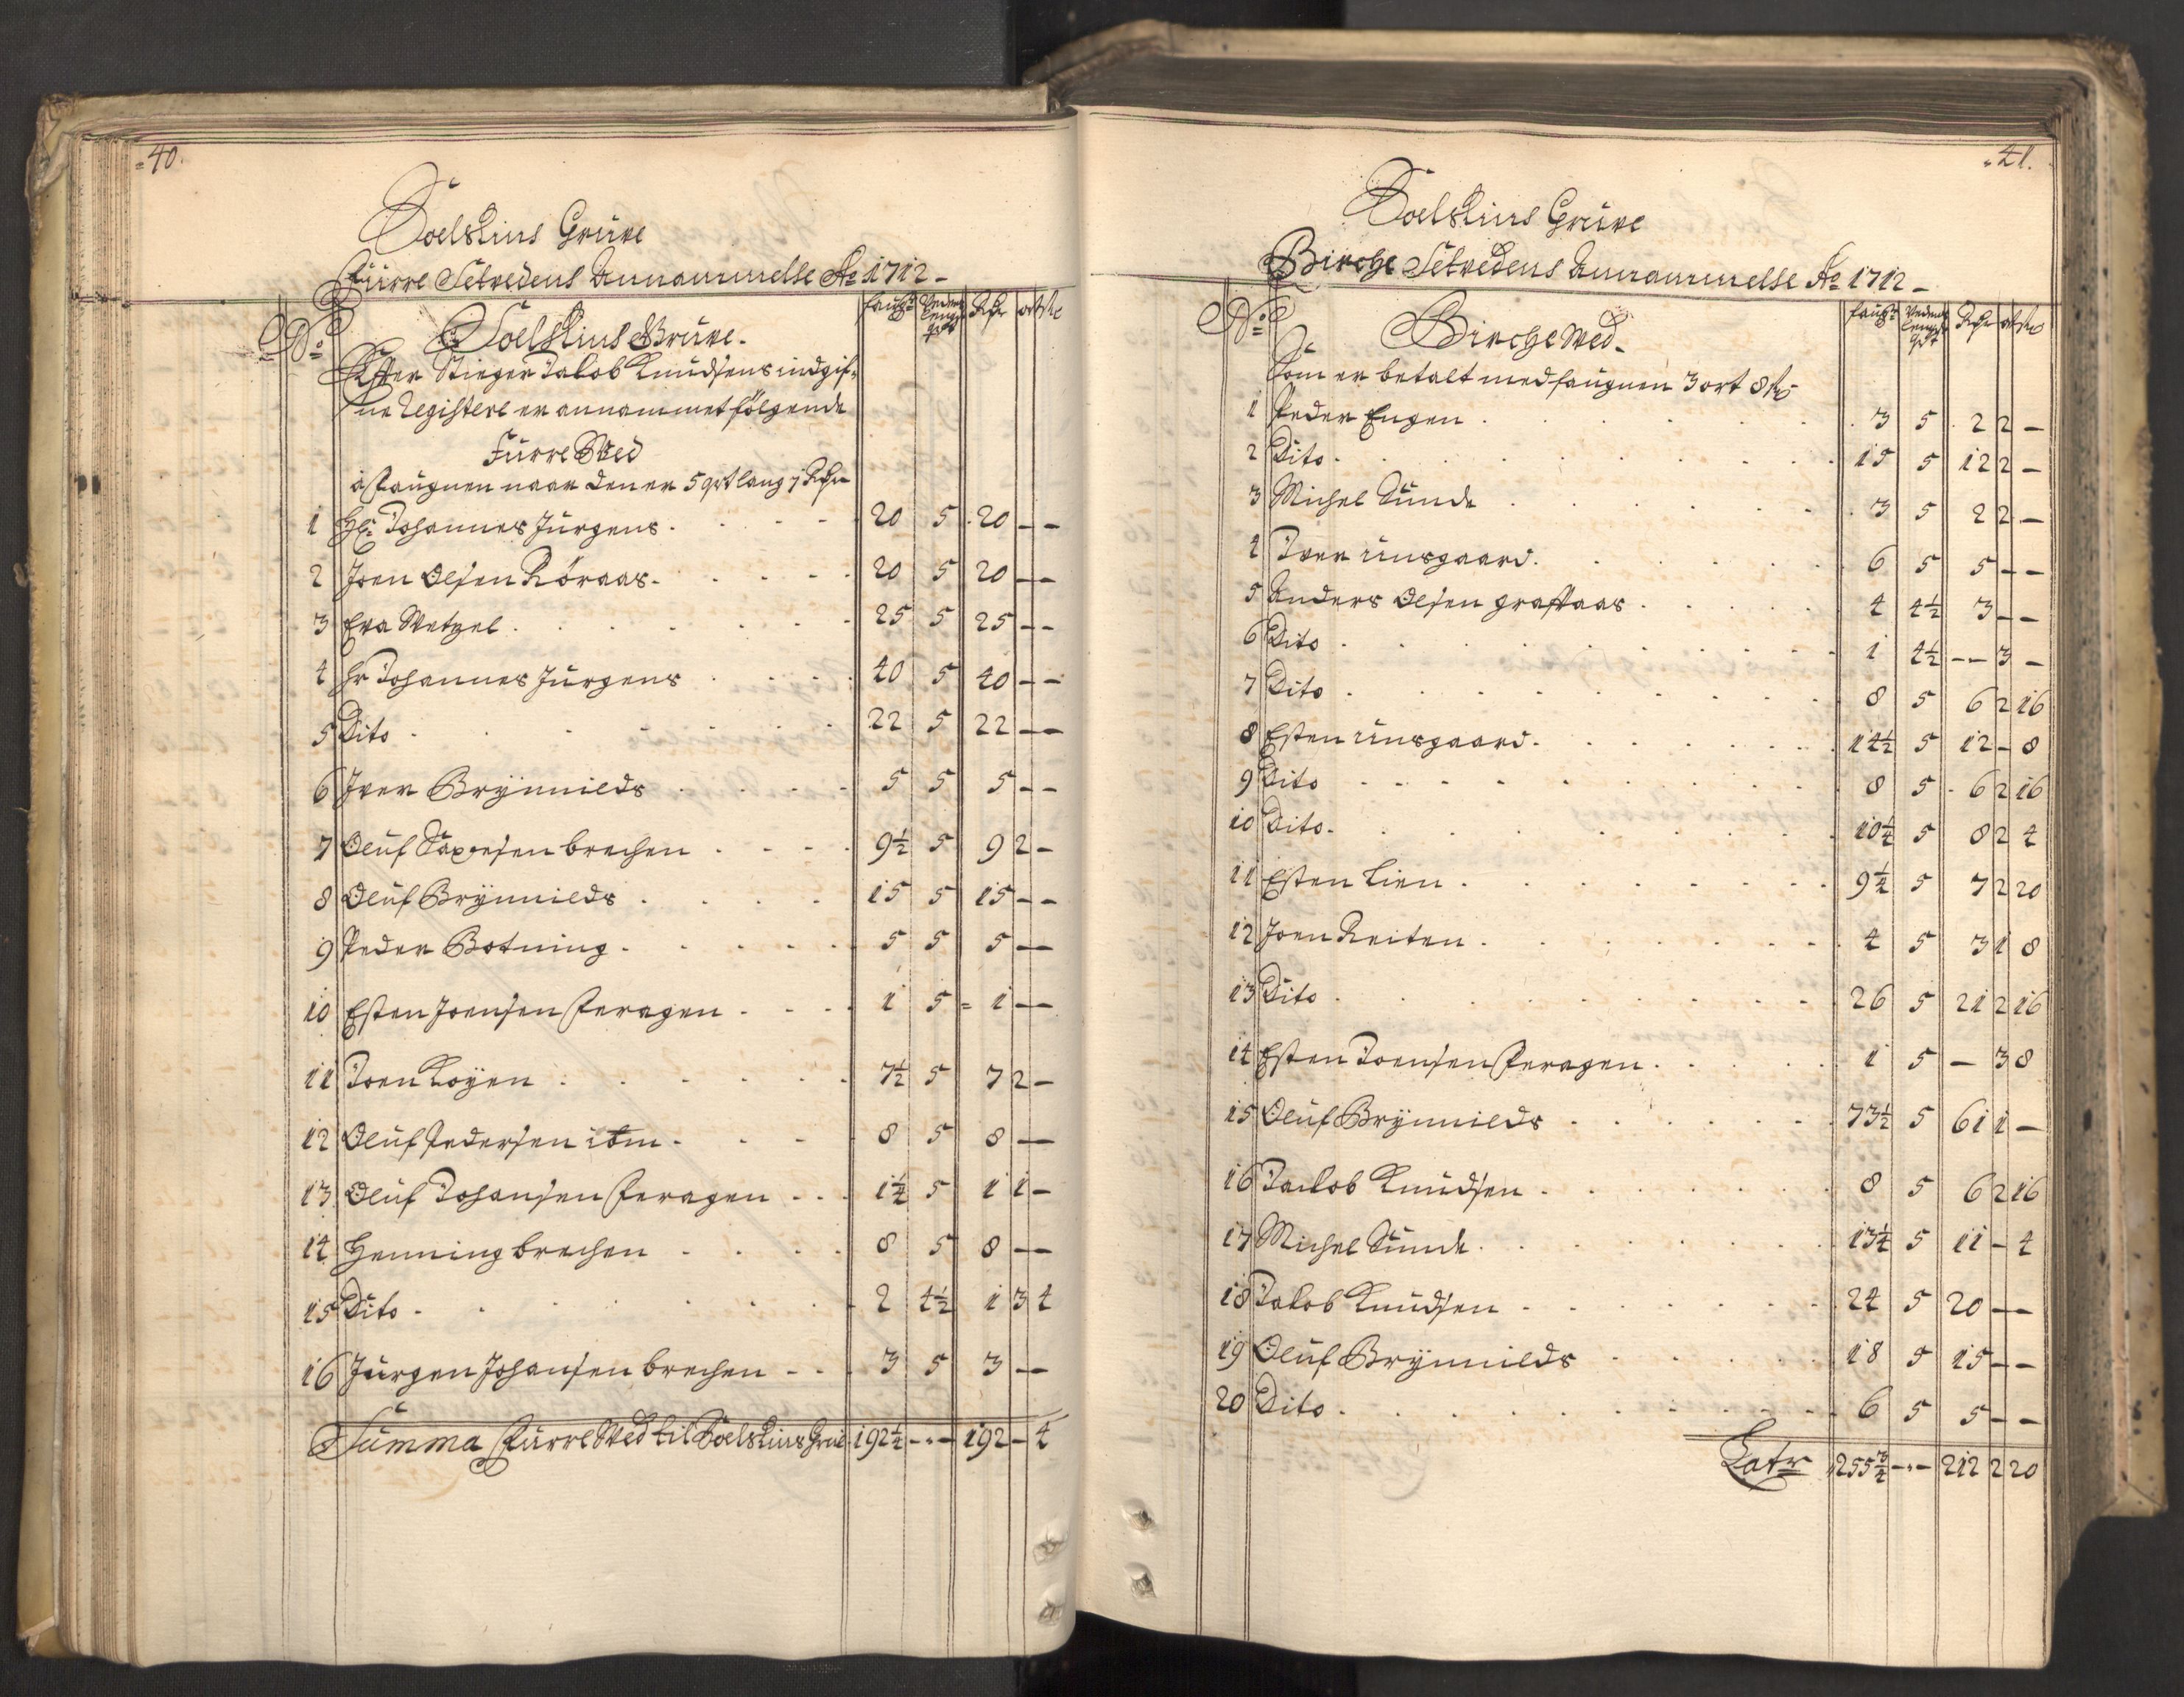 40.
Soelskins Grüve
Fürre Setvedens Annammelse Ao 1712
No
Soelskins Grüve.
faug: Vedens lengde qrt Rdr ort sk
Effter Stieger Jakob Knudsens indgif-
ne Registere er annammet fölgende
Fürre Wed
à faugnen naar den er 5 qrt lang 1 Rdr
1 Hr: Johannes Jürgens 20 5 20 - -
2 Joen Olsen Röraas 20 5 20 - -
3 Eva Wetzel 25 5 25 - -
4 Hr Johannes Jürgens 40 5 40 - -
5 Dito 22 5 22 - -
6 Iver Brÿnnilds 5 5 5 - -
7 Olüf brechen 9½ 5 9 2 -
8 Olüf Brÿnnilds 15 5 15 - -
9 Peder Botning 5 5 5 - -
10 Esten Joensen Feragen 1 5 1 - -
11 Joen Koÿen 7½ 5 7 2 -
12 Olüf Pedersen itm 8 5 8 - -
13 Olüf Johansen Feragen 1¼ 5 1 1 -
14 Henning brechen 8 5 8 - -
15 Dito 2 4½ 1 3 4
16 Jürgen Johansen brechen 3 5 3 - -
Summa Fürre Wed til Soelskins Grüv 192¼ - 192 - 4
41.
Soelskins Grüve
Birche Setvedens Annammelse Ao 1712
No
Birche Wed
faug: Vedens lengde qrt Rdr ort sk
Som er betalt med faugnen 3 ort 8 sk
1 Peder Engen 3 5 2 2 -
2 Dito 15 5 12 2 -
3 Michel Sünde 3 5 2 2 -
4 Iver Ünsgaard 6 5 5 - -
5 Anders Olsen graffaas 4 4½ 3 - -
6 Dito 1 4½ - 3 -
7 Dito 8 5 6 2 16
8 Esten Ünsgaard 14½ 5 12 - 8
9 Dito 8 5 6 2 16
10 Dito 10¼ 5 8 2 4
11 Esten Lien 9¼ 5 7 2 20
12 Joen Reiten 4 5 3 1 8
13 Dito 26 5 21 2 16
14 Esten Joensen Feragen 1 5 - 3 8
15 Olüf Brÿnnilds 73½ 5 61 1 -
16 Jacob Knüdsen 8 5 6 2 16
17 Michel Sünde 13¼ 5 11 - 4
18 Jakob Knüdsen 24 5 20 - -
19 Olüf Brÿnnilds 18 5 15 - -
20 Dito 6 5 5 - -
Latr 255¾ - 212 2 20